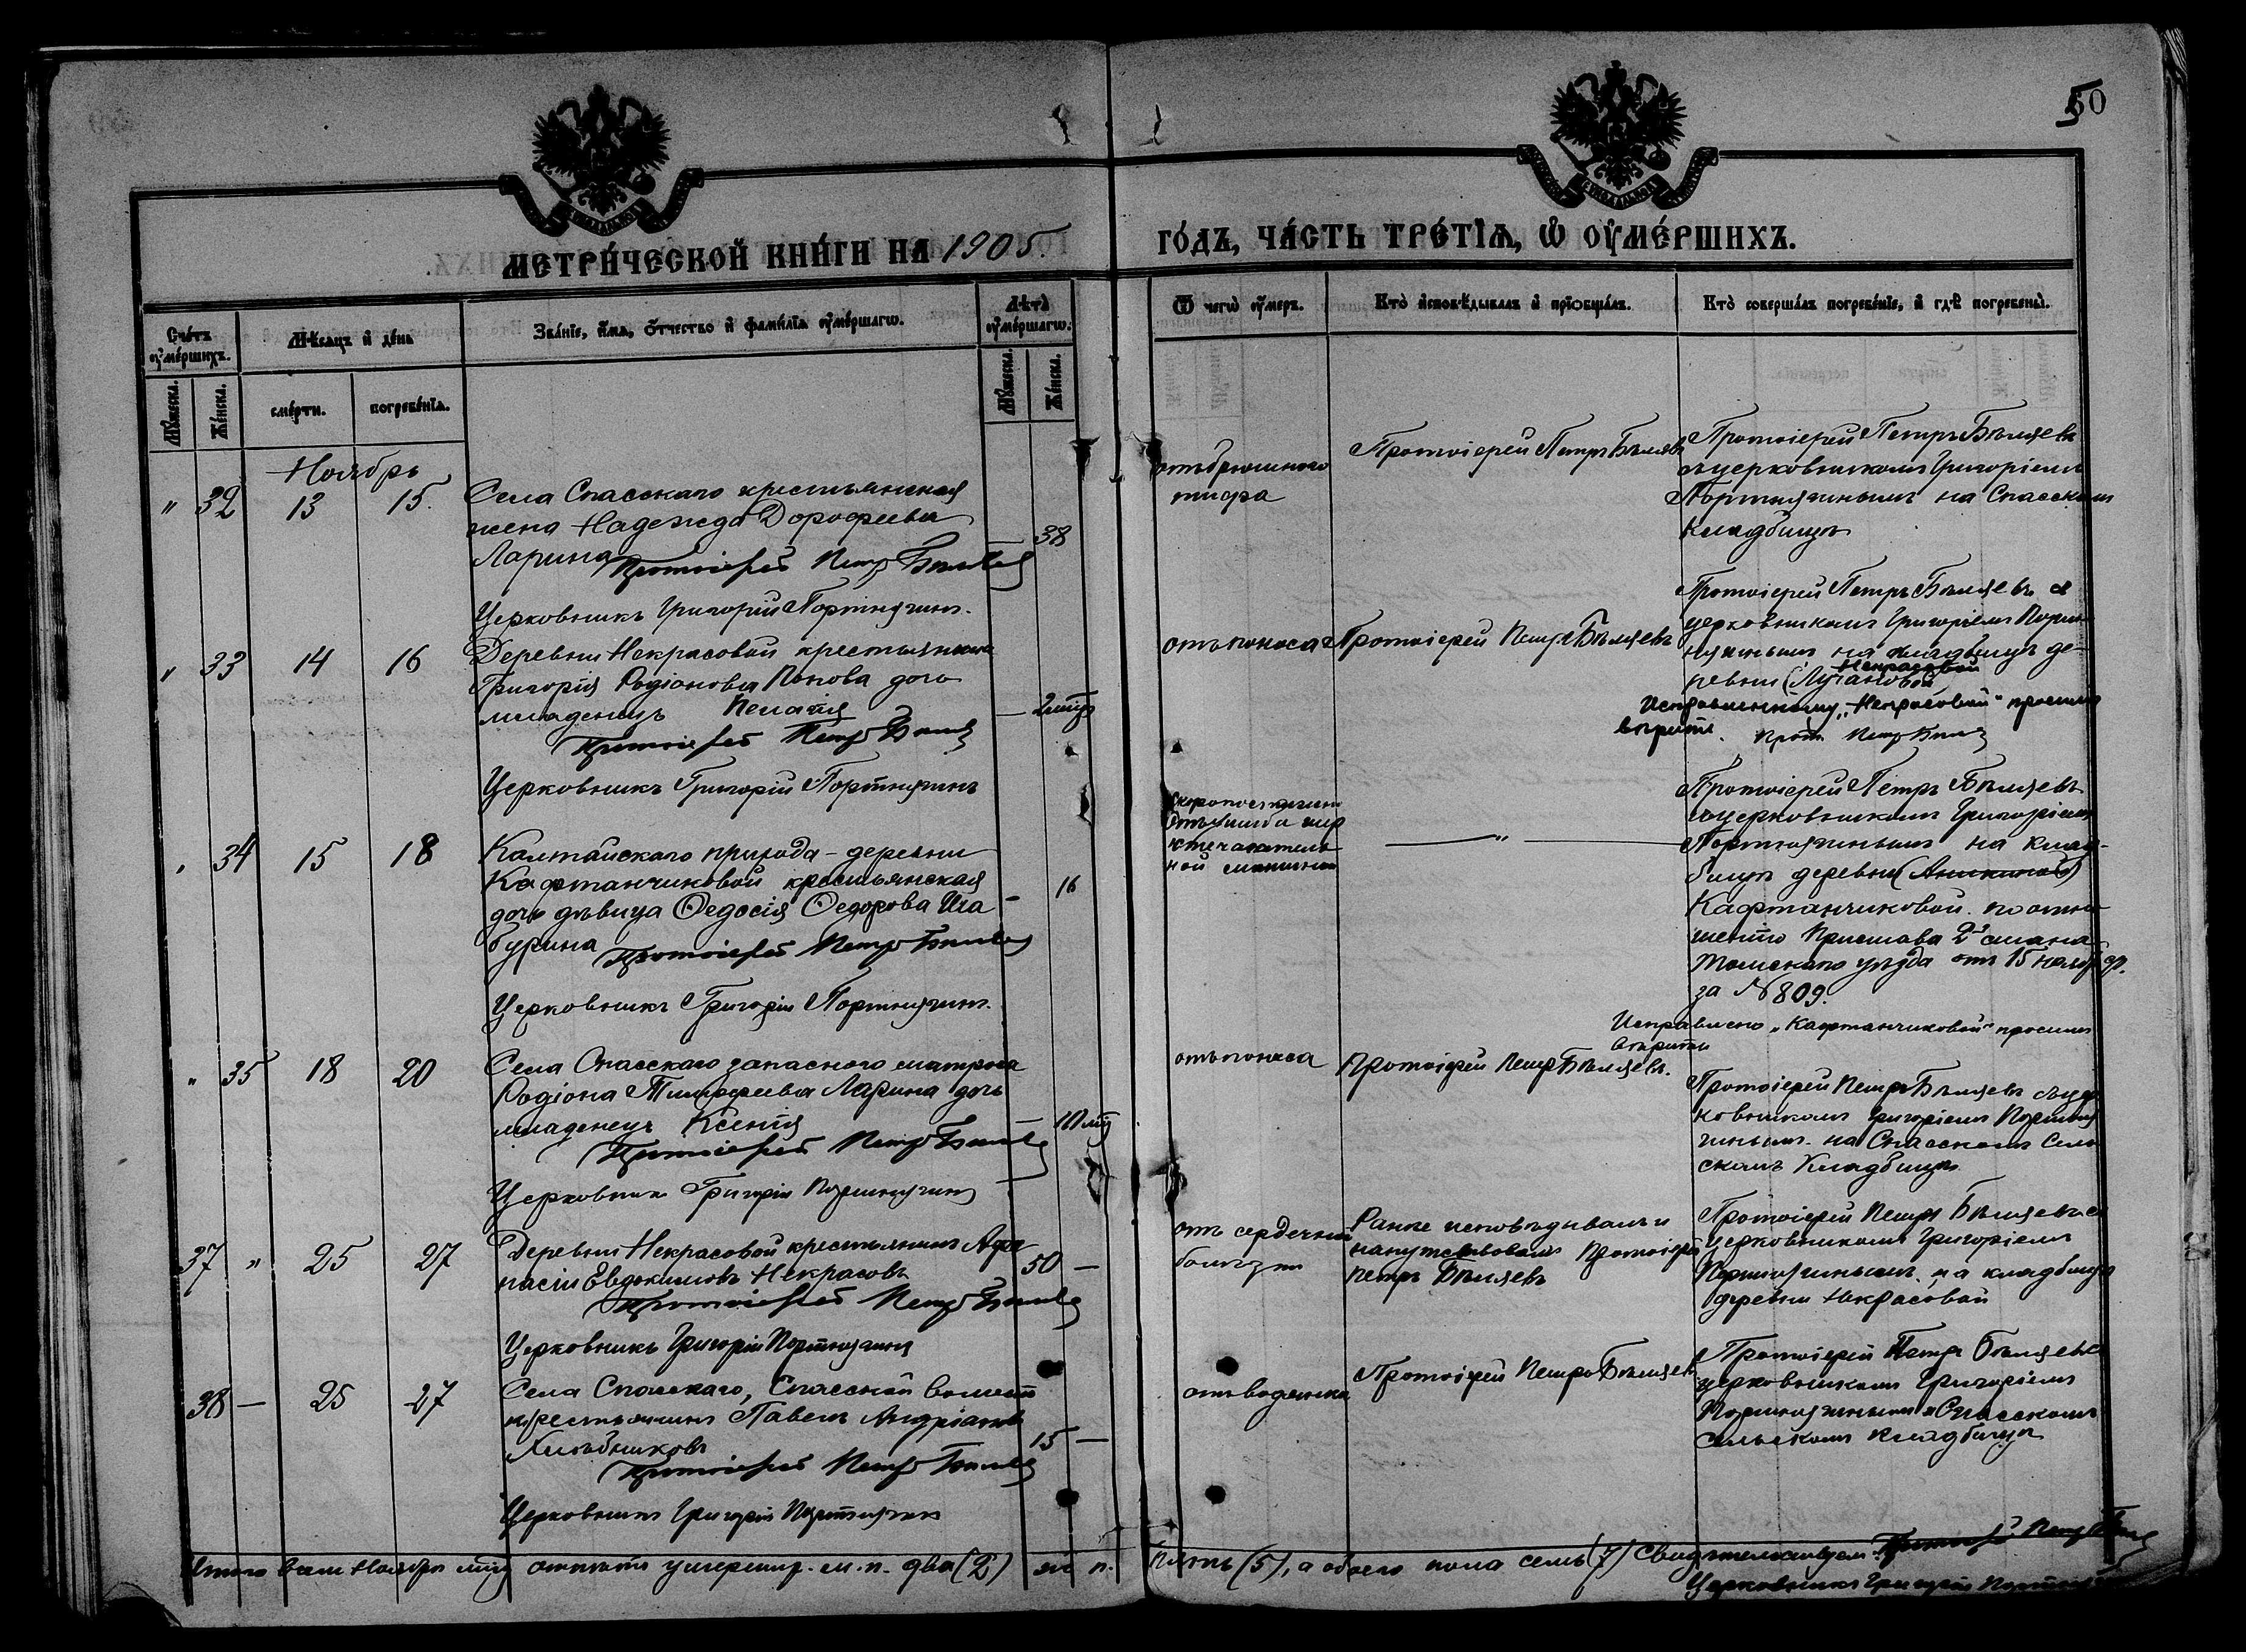 50
МЕТРИ́ЧЕСКОЙ КНИ́ГИ НА 1905.
ГО́ДЪ, ЧА́СТЬ ТРЕ́ТІѦ, Ѡ ОУМЕ́РШИХЪ.
Сче́тъ оумершихъ.
Мꙋжеска.
Женска.
Мѣсѧцъ и день
сме́рти.
погребе́нїѧ.
Зва́нїе, и́мѧ, о́тчество и фами́лїѧ оуме́ршагѡ.
Лѣта оуме́ршагѡ.
Мꙋжеска.
Женска.
Ѿ чегѡ оумеръ.
Кто̀ исповѣдывалъ и прїобщалъ.
Кто̀ совершалъ погребе́нїе, и гдѣ погребены̀.
Ноябрь
" 32 13 15.
Села Спасскаго крестьянская
жена Надежда Дорофеева
Ларина
38
Протоіерей Петръ Бѣляевъ
Церковникъ Григорій Портнягинъ.
отъ брюшного
тифа
Протоіерей Петръ Бѣляевъ
Протоіерей Петръ Бѣляевъ
съ церковникомъ Григоріемъ
Портнягинымъ на Спасскомъ
кладбищѣ
" 33 14 16
Деревни Некрасовой крестьянина
Григорія Родіонова Попова дочь
младенецъ Пелагія
— 2 мѣс
Протоіерей Петръ Бѣляевъ
Церковникъ Григорій Портнягинъ
отъ поноса
Протоіерей Петръ Бѣляевъ
Протоіерей Петръ Бѣляевъ съ
церковникомъ Григоріемъ Порт-
нягинымъ на кладбищѣ де-
ревни (Лучановой
Некрасовой
Исправленному „Некрасовой" просимъ
вѣрить. Прот. Петръ Бѣляевъ
" 34 15 18
Калтайскаго прихода - деревни
Кафтанчиковой крестьянская
дочь дѣвица Ѳедосія Ѳедорова Ша
бурина
— 16
Протоіерей Петръ Бѣляевъ
Церковникъ Григорій Портнягинъ.
Скоропостижно
отъ ушиба
ной машиной
— " —
Протоіерей Петръ Бѣляевъ
съ церковникомъ Григоріемъ
Портнягинымъ на клад-
бищѣ деревни (Аникиной)
Кафтанчиковой. по отно
шенію Пристава 2 стана
Томскаго уѣзда отъ 15 ноября
за № 809.
Исправлено „Кафтанчиковой" просимъ
вѣрить
" 35 18 20
Села Спасскаго запаснаго матроса
Родіона Тимофеева Ларина дочь
младенецъ Ксенія
— 10 мѣс
Протоіерей Петръ Бѣляевъ
Церковникъ Григорій Портнягинъ
отъ поноса
Протоіерей Петръ Бѣляевъ.
Протоіерей Петръ Бѣляевъ съ цер
ковникомъ Григоріемъ Портня
гинымъ на Спасскомъ Сель
скомъ Кладбищѣ
37 " 25 27
Деревни Некрасовой крестьянинъ Афа
насій Евдокимовъ Некрасовъ
50 —
Протоіерей Петръ Бѣляевъ
Церковникъ Григорій Портнягинъ
отъ сердечной
болѣзни
Ранѣе исповѣдывалъ и
напутствовалъ Протоіерей
Петръ Бѣляевъ
Протоіерей Петръ Бѣляевъ съ
церковникомъ Григоріемъ
Портнягинымъ на кладбищѣ
деревни Некрасовой
38 — 25 27
Села Спасскаго, Спасской волости
крестьянинъ Павелъ Андріановъ
Хлѣбниковъ
15 —
Протоіерей Петръ Бѣляевъ
Церковникъ Григорій Портнягинъ
отъ водянки
Протоіерей Петръ Бѣляевъ
Протоіерей Петръ Бѣляевъ съ
церковникомъ Григоріемъ
Портнягинымъ на Спасскомъ
Сельскомъ кладбищѣ
Итого въ Ноябрѣ мѣс умершихъ м. п. два (2) ж п. пять (5), а обоего пола семь (7) Свидѣтельствуемъ: Протоіерей Петръ Бѣляевъ
Церковникъ Григорій Портнягинъ